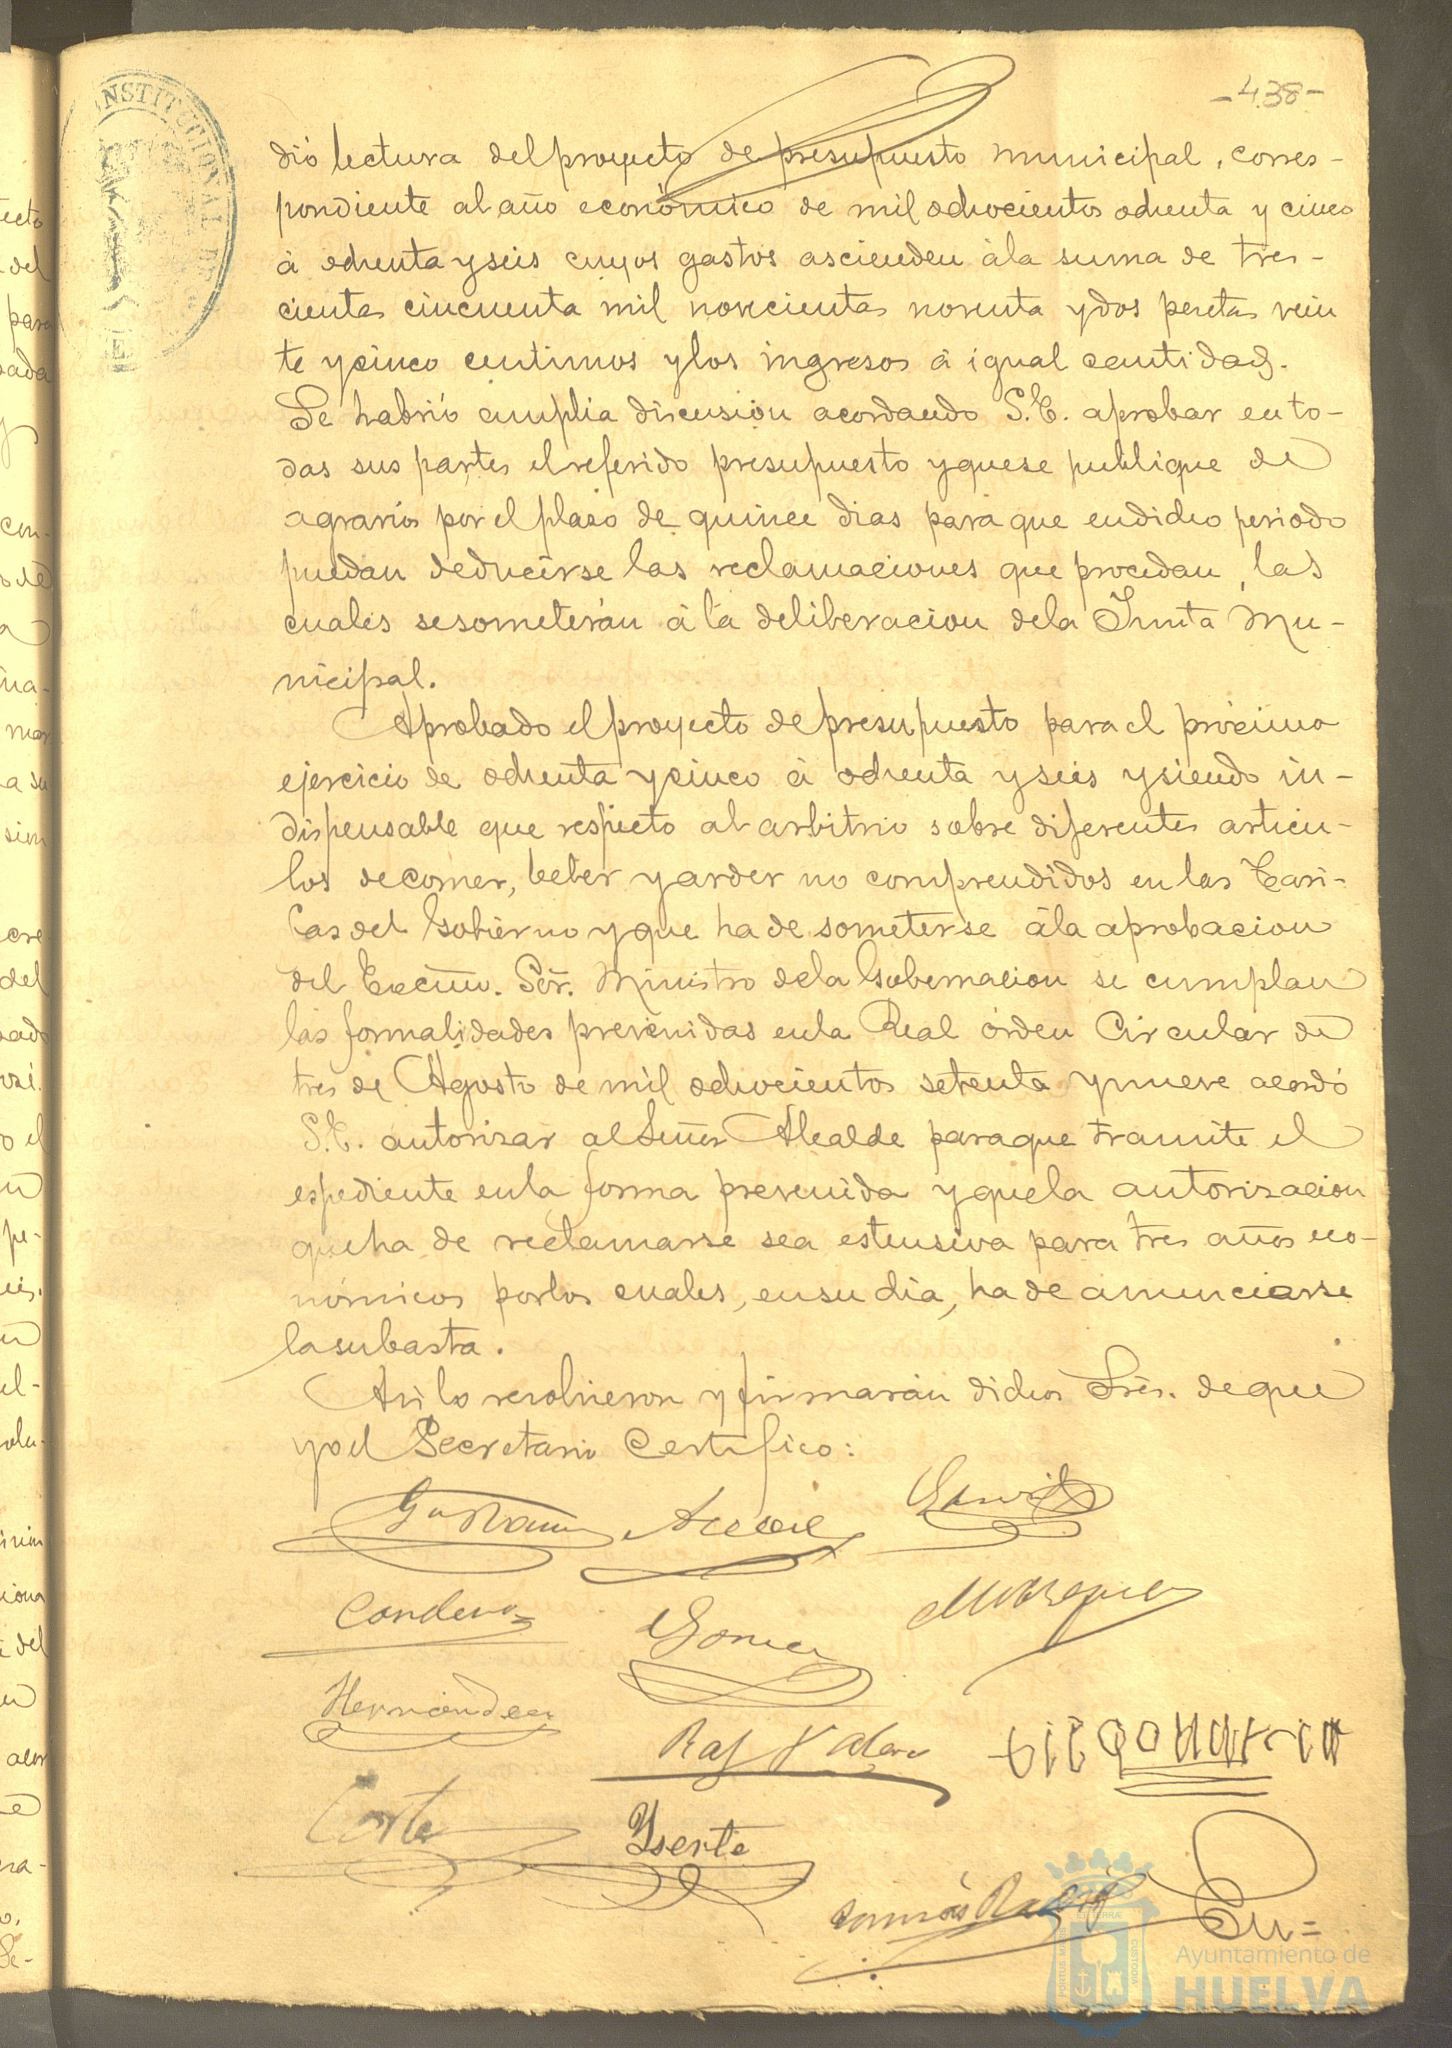 -438-
dió lectura del proyecto de presupuesto municipal, corres-
pondiente al año económico de mil ochocientos ochenta y cinco
á ochenta y seis cuyos gastos ascienden á la suma de tres-
cientas cincuenta mil novecientas noventa y dos pesetas vein
te y cinco centimos y los ingresos á igual cantidad.
Se habrió amplia discusion acordando S.E. aprobar en to-
das sus partes el referido presupuesto y que se publique de
agravios por el plazo de quince dias para que en dicho periodo
puedan deducirse las reclamaciones que procedan, las
cuales se someterán á la deliberacion de la Junta Mu-
nicipal.
Aprobado el proyecto de presupuesto para el prócimo
ejercicio de ochenta y cinco á ochenta y seis y siendo in-
dispensable que respecto al arbitrio sobre diferentes articu-
los de comer, beber y arder no comprendidos en las Tari-
fas del Gobierno y que ha de someterse á la aprobacion
del Excmo. Sór. Ministro de la Gobernacion se cumplan
las formalidades prevenidas en la Real órden Circular de
tres de Agosto de mil ochocientos setenta y nueve acordó
S.E. autorizar al Señor Alcalde para que tramite el
espediente en la forma prevenida y que la autorizacion
que ha de reclamarse sea estensiva para tres años eco-
nómicos por los cuales, en su dia, ha de anunciarse
la subasta.
Asi lo resolvieron y firmarán dichos Sres. de que
yo el Secretario Certifico:
Garcia
Gomez Marquez
Hernandez
Cortes Yserte
Tomás
En=
Ayuntamiento de
HUELVA